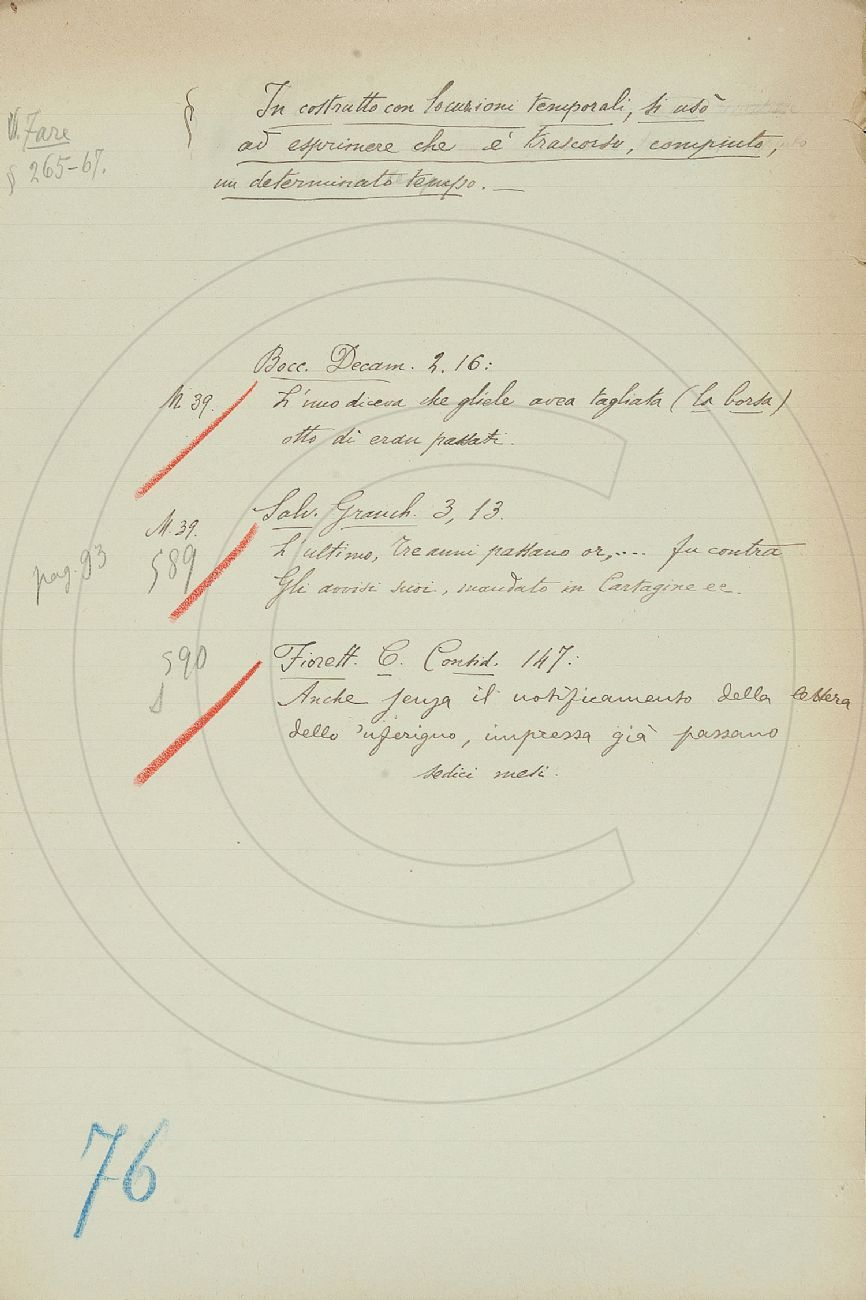 V. Fare
§ 265-67.
§ In costrutto con locuzioni temporali, si usò
ad esprimere che è trascorso, compiuto,
un determinato tempo. —
Bocc. Decam. 2. 16:
M. 39.
L'uno diceva che gliele avea tagliata (la borsa)
otto dì eran passati.
Salv. Granch. 3, 13.
M. 39.
589
pag. 93
L'ultimo, tre anni passano or,.... fu contra
Gli avvisi suoi, mandato in Cartagine ec.
590
Fiorett. C. Consid. 147:
Anche senza il notificamento della lettera
dello 'nferigno, impressa già passano
sedici mesi.
76